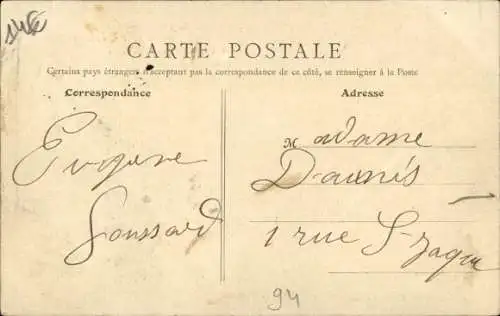 CARTE POSTALE
Certains pays étrangers n'acceptant pas la correspondance de ce côté, se renseigner à la Poste
Correspondance
Adresse
Eugène
Goussard
Madame
Daunis
1 rue St-Jaques
94